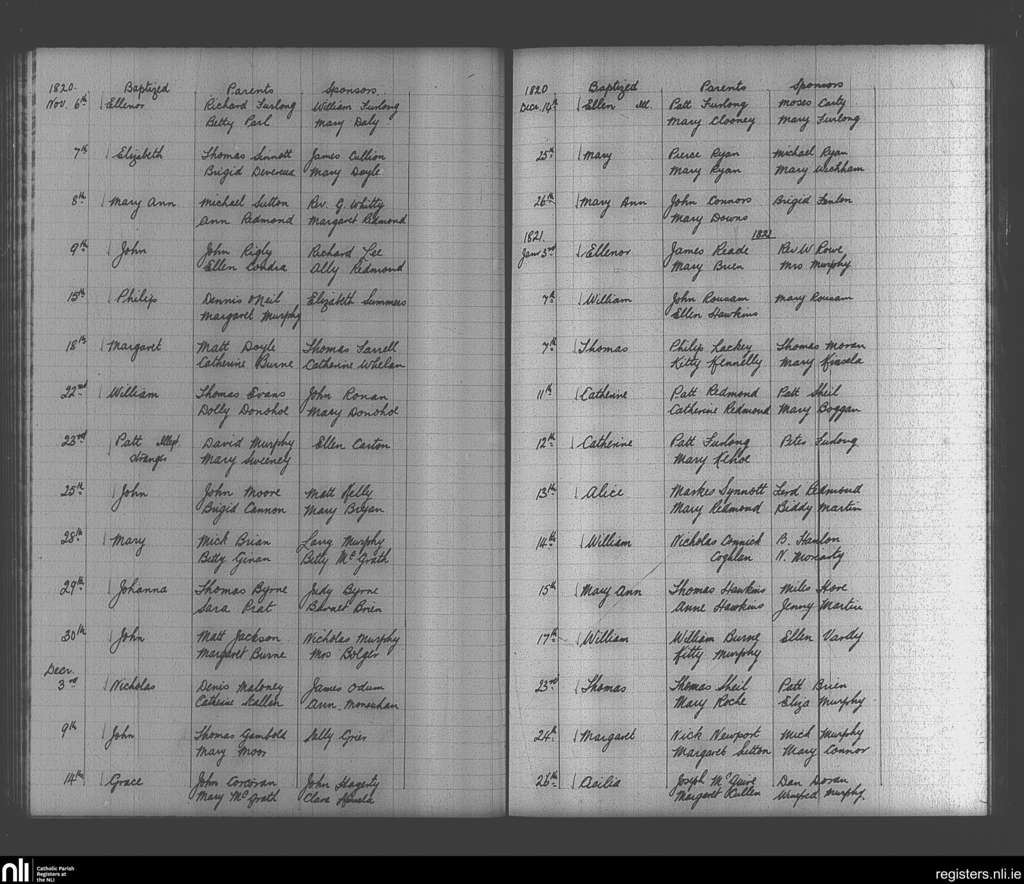 1820. Baptized Parents Sponsors
Nov. 6th Ellenor Richard Furlong William Furlong
Betty Parl Mary Daly
7th Elizabeth Thomas Sinnott James Cullion
Brigid Devereux Mary Doyle
8th Mary Ann Michael Sutton Rev. G. Whitty
Ann Redmond Margaret Redmond
9th John John Rigly Richard Lee
Ellen Condra Ally Redmond
15th Philip Dennis ONeil Elizabeth Summers
Margaret Murphy
18th Margaret Matt Doyle Thomas Farrell
Catherine Burne Catherine Whelan
22nd William Thomas Evans John Ronan
Dolly Donohoe Mary Donohoe
23rd Patt Illegt David Murphy Ellen Carton
Stranger Mary Sweeney
25th John John Moore Matt Kelly
Brigid Cannon Mary Bryan
28th Mary Mick Brian Larry Murphy
Betty Ginan Betty McGrath
29th Johanna Thomas Byrne Judy Byrne
Sara Prat Brien
30th John Matt Jackson Nicholas Murphy
Margaret Burne Mrs Bolger
Decr.
3rd Nicholas Denis Maloney James Odum
Catherine Scallan Ann Monenhan
9th John Thomas Gambold Nelly Grier
Mary Moor
14th Grace John Corcoran John Hagerty
Mary McGrath Clara Kinsela
1820 Baptized Parents Sponsors
Decr. 14th Ellen Ill. Patt Furlong Moses Carty
Mary Clooney Mary Furlong
25th Mary Pierce Ryan Michael Ryan
Mary Ryan Mary Wickham
26th Mary Ann John Connors Brigid Fenlon
Mary Downs
1821. 1821
Jan 3rd Ellenor James Reade Rev W Rowe
Mary Brien Mrs Murphy
7th William John Rousam Mary Rousam
Ellen Hawkins
7th Thomas Philip Lackey Thomas Moran
Kitty Kennelly Mary Kinsela
11th Catherine Patt Redmond Patt Sheil
Catherine Redmond Mary Boggan
12th Catherine Patt Furlong Peter Furlong
Mary Kehoe
13th Alice Markes Synnott Ferd Redmond
Mary Redmond Biddy Martin
14th William Nicholas Connick B. Hanlon
Coghlan N. Moriarty
15th Mary Ann Thomas Hawkins Miles Hore
Anne Hawkins Jenny Martin
17th William William Burne Ellen Vardy
Kitty Murphy
23rd Thomas Thomas Sheil Patt Brien
Mary Roche Eliza Murphy
24th Margaret Nick Newport Mick Murphy
Margaret Sutton Mary Connor
26th Cecilia Joseph McGuire Dan Doran
Margaret Cullen Winifred Murphy.
nli Catholic Parish
Registers at
the NLI
registers.nli.ie